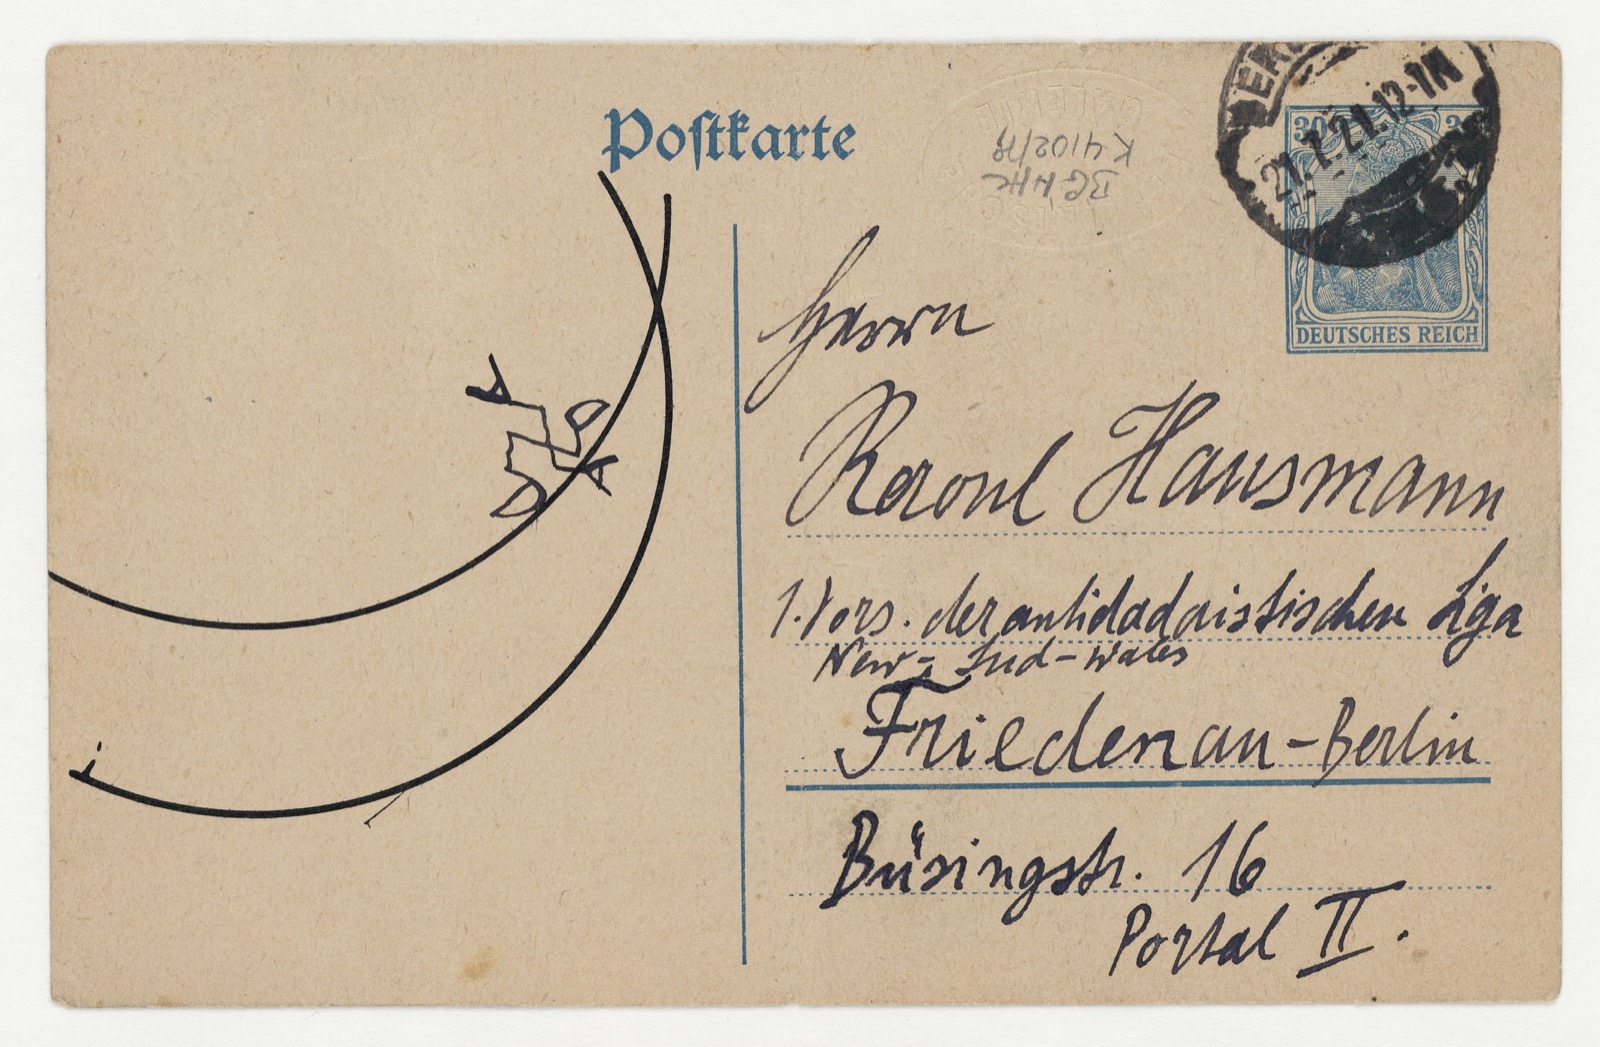 Postkarte
30
21.7.21.12-1N
DEUTSCHES REICH
K 4102/78
Herrn
Raoul Hausmann
1. Vors. der antidadaistischen Liga
New-Süd-Wales
Friedenau-Berlin
Büsingstr. 16
Portal II.
DADA
i